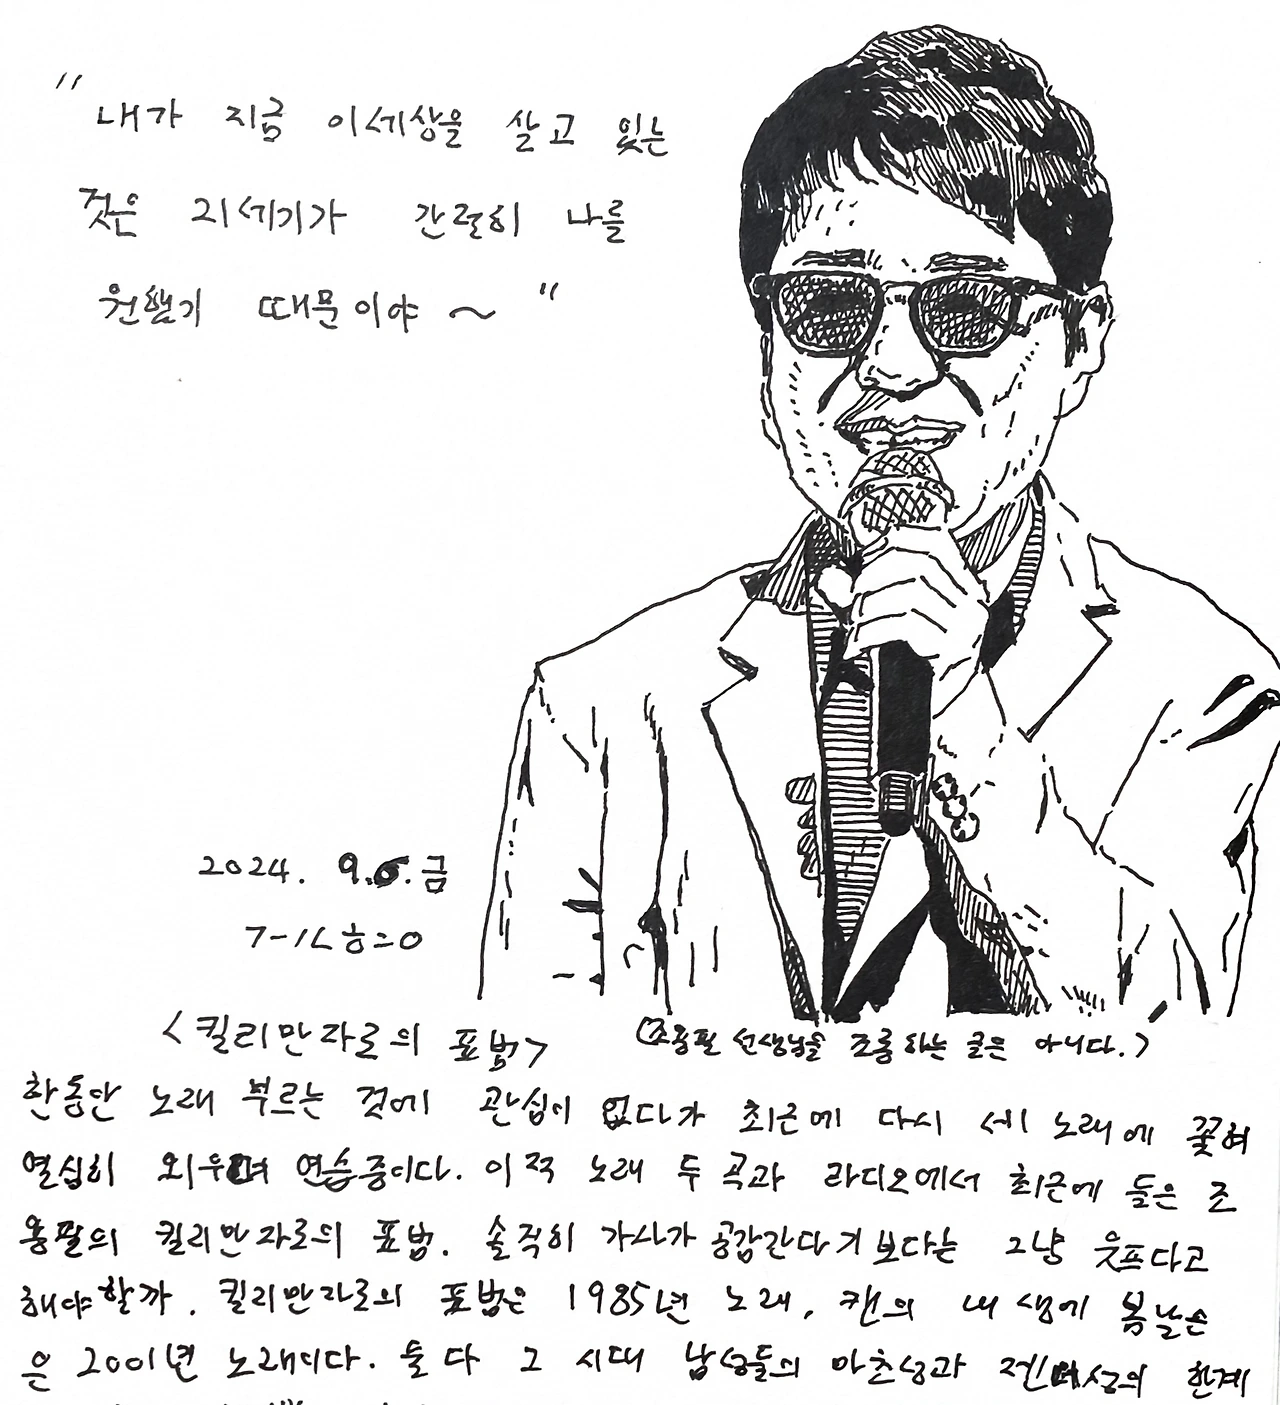 "내가 지금 이세상을 살고 있는
것은 21세기가 간절히 나를
원했기 때문이야~"
2024. 9.6.금
<킬리만자로의 표범>
(조용필 선생님을 조롱하는 글은 아니다.)
한동안 노래 부르는 것에 관심이 없다가 최근에 다시 세 노래에 꽂혀
열심히 외우며 연습중이다. 이적 노래 두 곡과 라디오에서 최근에 들은 조
용필의 킬리만자로의 표범. 솔직히 가사가 공감간다기보다는 그냥 웃프다고
해야할까. 킬리만자로의 표범은 1985년 노래, 캔의 내 생에 봄날은
은 2001년 노래이다. 둘 다 그 시대 남성들의 마초성과 젠더성의 한계